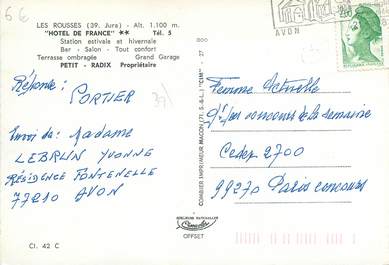 6€
LES ROUSSES (39. Jura) - Alt. 1.100 m.
"HOTEL DE FRANCE" ** Tél. 5
Station estivale et hivernale
Bar - Salon - Tout confort
Terrasse ombragée Grand Garage
PETIT - RADIX Propriétaire
Réponse :
PORTIER
39/
Envoi de : Madame
LEBRUN YVONNE
RÉSIDENCE FONTENELLE
77210 AVON
Cl. 42 C
COMBIER IMPRIMEUR MACON (71. S.-&-L.) "CIM" - 27 000
OFFSET
AVON
Femme Actuelle
concours de la semaine
Cedex 2700
99270 Paris concours